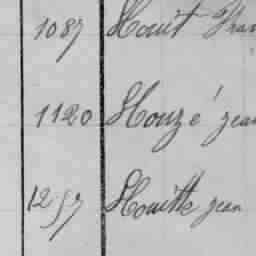 1087 Houit Fran
1120 Houzé jean
1257 Houitte jean